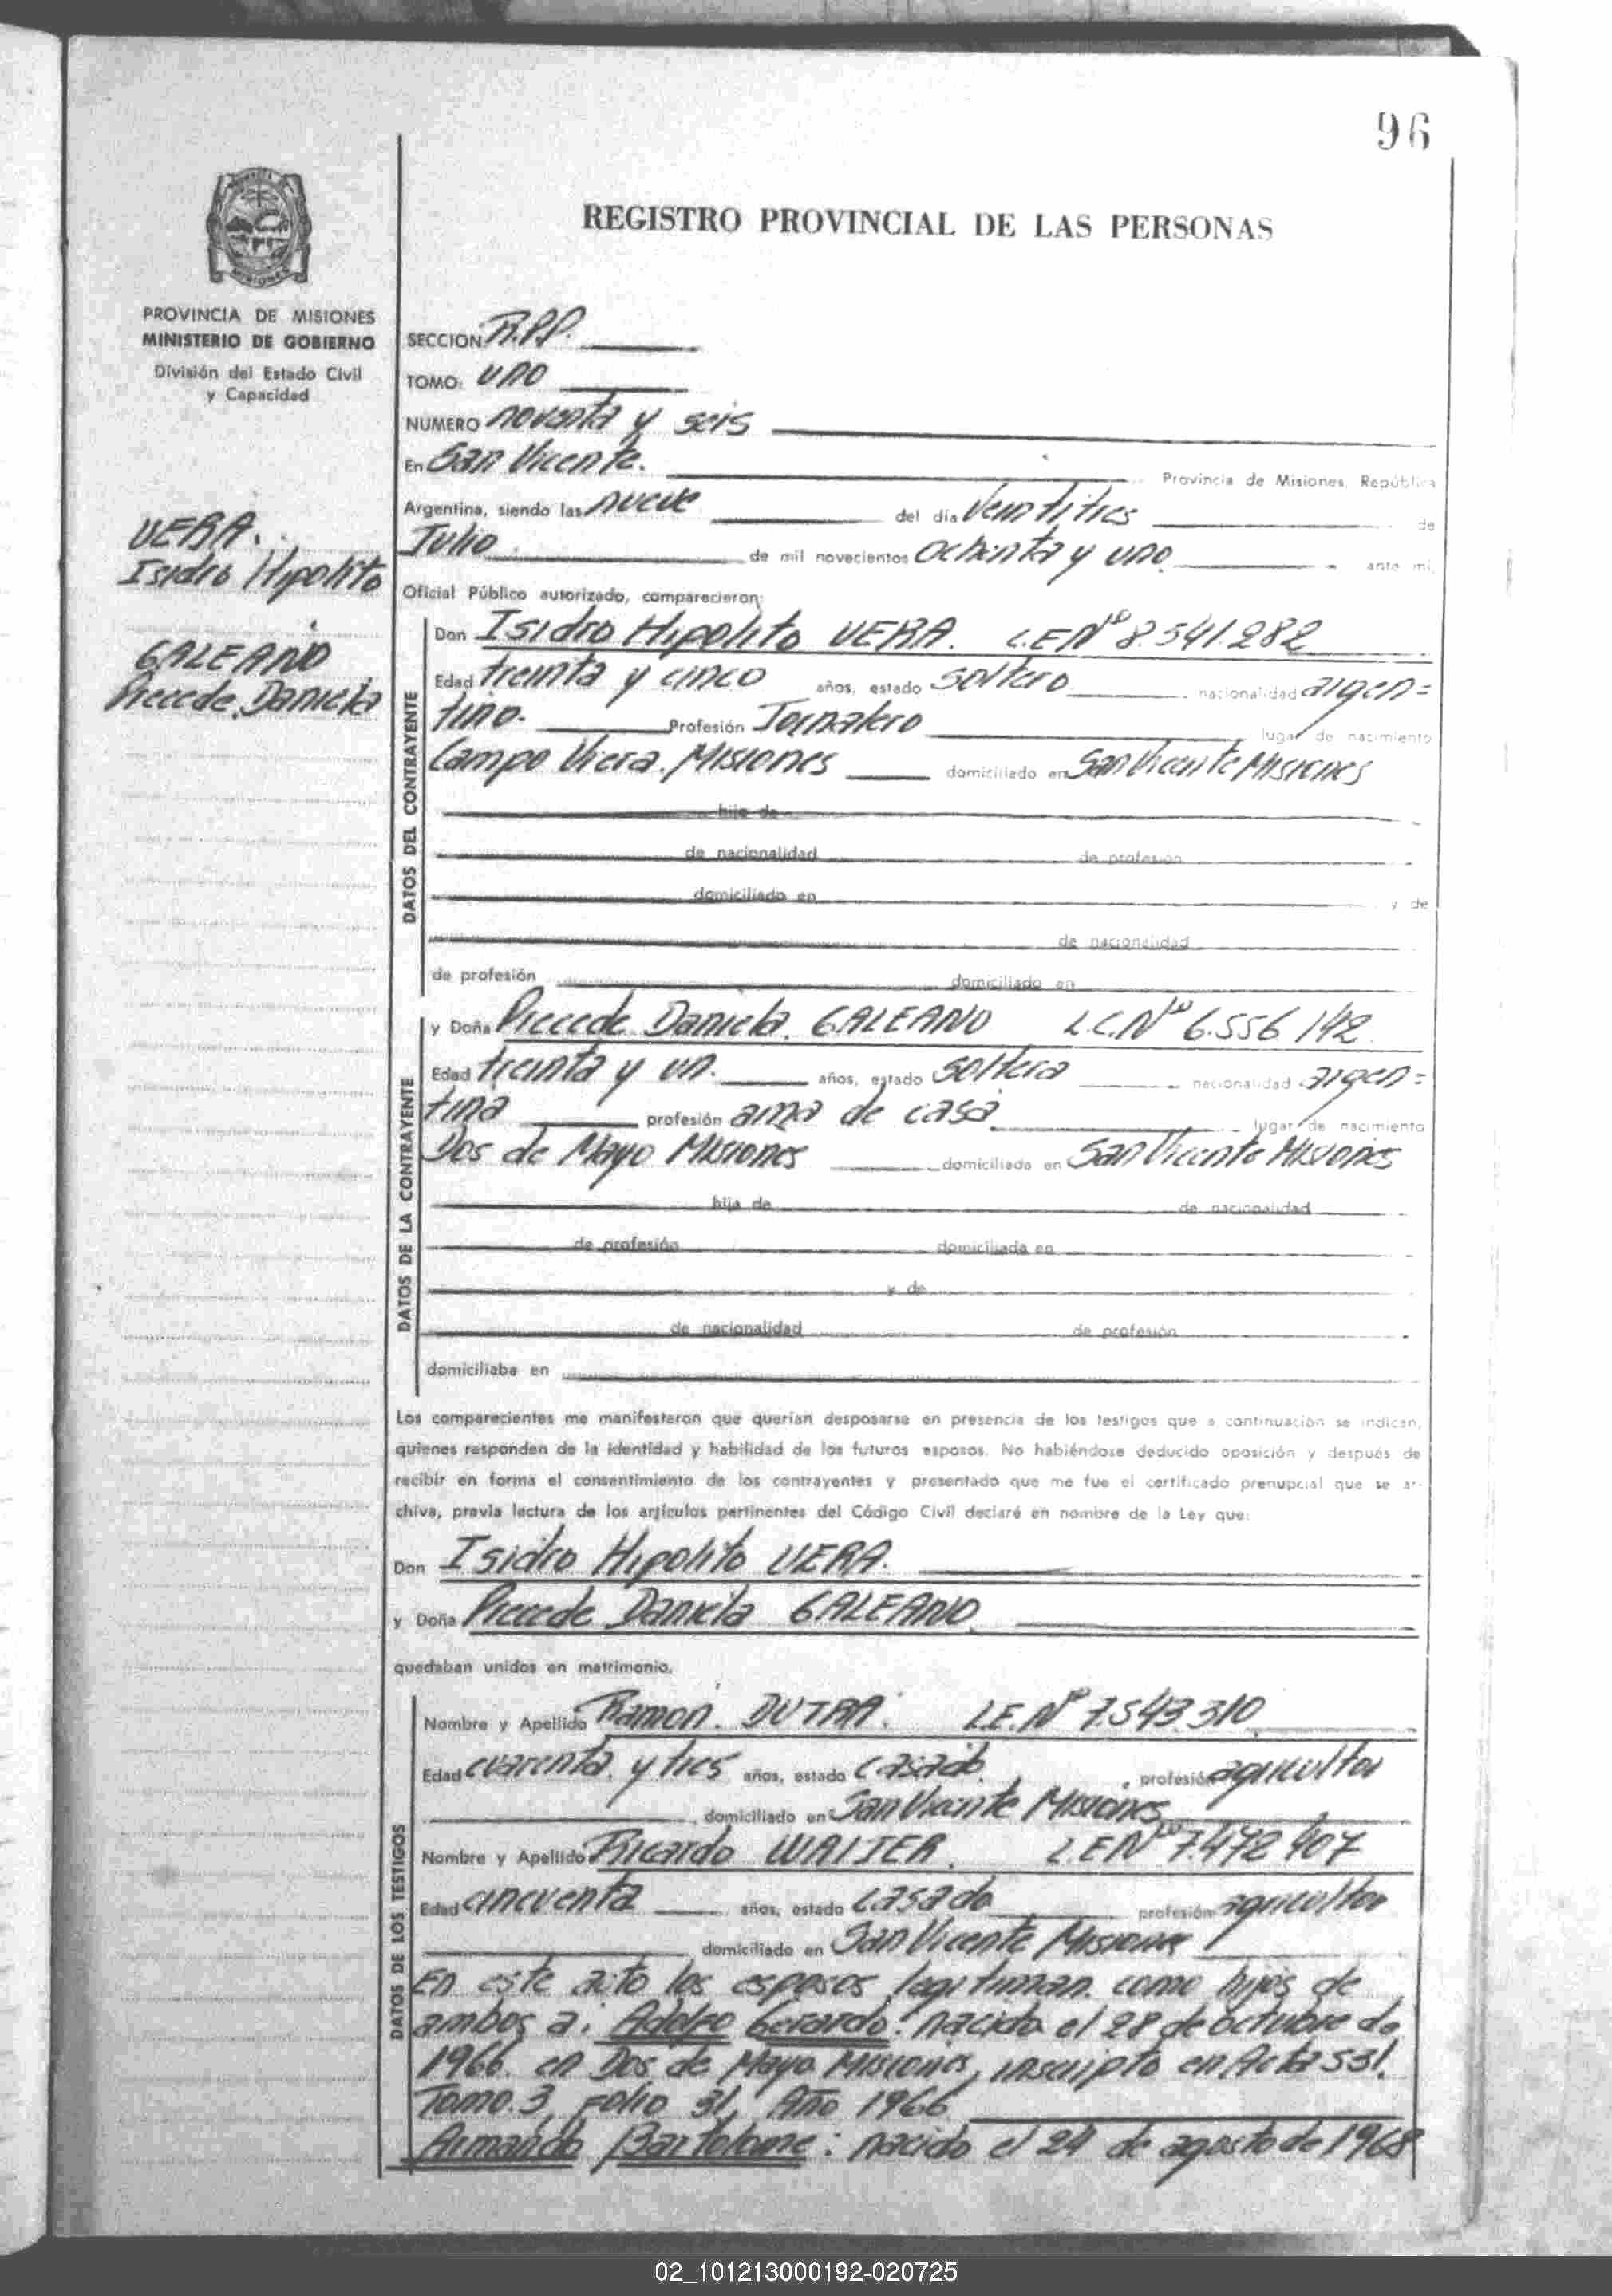 96
REGISTRO PROVINCIAL DE LAS PERSONAS
PROVINCIA DE MISIONES
MINISTERIO DE GOBIERNO
División del Estado Civil
y Capacidad
SECCION R.P.P.
TOMO: uno
NUMERO noventa y seis
En San Vicente. Provincia de Misiones, República
Argentina, siendo las nueve del día veintitres de
Julio de mil novecientos ochenta y uno ante mi,
Oficial Público autorizado, comparecieron:
VERA.
Isidro Hipolito
GALEANO
Daniela
Don Isidro Hipolito VERA. L.E.Nº 8.541.282
Edad treinta y cinco años, estado soltero nacionalidad argen=
tino. Profesión Jornalero lugar de nacimiento
Campo Viera. Misiones domiciliado en San Vicente Misiones
hijo de
de nacionalidad de profesión
domiciliado en y de
de nacionalidad
de profesión domiciliado en
DATOS DEL CONTRAYENTE
y Doña Daniela. GALEANO L.C.Nº 6.556.142
Edad treinta y un. años, estado soltera nacionalidad argen=
tina profesión ama de casa lugar de nacimiento
Dos de Mayo Misiones domiciliada en San Vicente Misiones
hija de de nacionalidad
de profesión domiciliada en
y de
de nacionalidad de profesión
domiciliaba en
DATOS DE LA CONTRAYENTE
Los comparecientes me manifestaron que querían desposarse en presencia de los testigos que a continuación se indican,
quienes responden de la identidad y habilidad de los futuros esposos. No habiéndose deducido oposición y después de
recibir en forma el consentimiento de los contrayentes y presentado que me fue el certificado prenupcial que se ar-
chiva, previa lectura de los artículos pertinentes del Código Civil declaré en nombre de la Ley que:
Don Isidro Hipolito VERA.
y Doña Daniela GALEANO
quedaban unidos en matrimonio.
Nombre y Apellido Ramon. DUTRA. L.E.Nº 7.543.310
Edad cuarenta y tres años, estado casado, profesión agricultor
domiciliado en San Vicente Misiones
Nombre y Apellido Ricardo WALTER. L.E.Nº 7.472.407
Edad cincuenta años, estado casado profesión agricultor
domiciliado en San Vicente Misiones
DATOS DE LOS TESTIGOS
En este acto los esposos legitiman como hijos de
ambos a: Adolfo Gerardo: nacido el 28 de octubre de
1966 en Dos de Mayo Misiones, inscripto en Acta 531.
Tomo. 3, Folio 31, Año 1966
Armando Bartolome: nacido el 24 de agosto de 1968
02_101213000192-020725